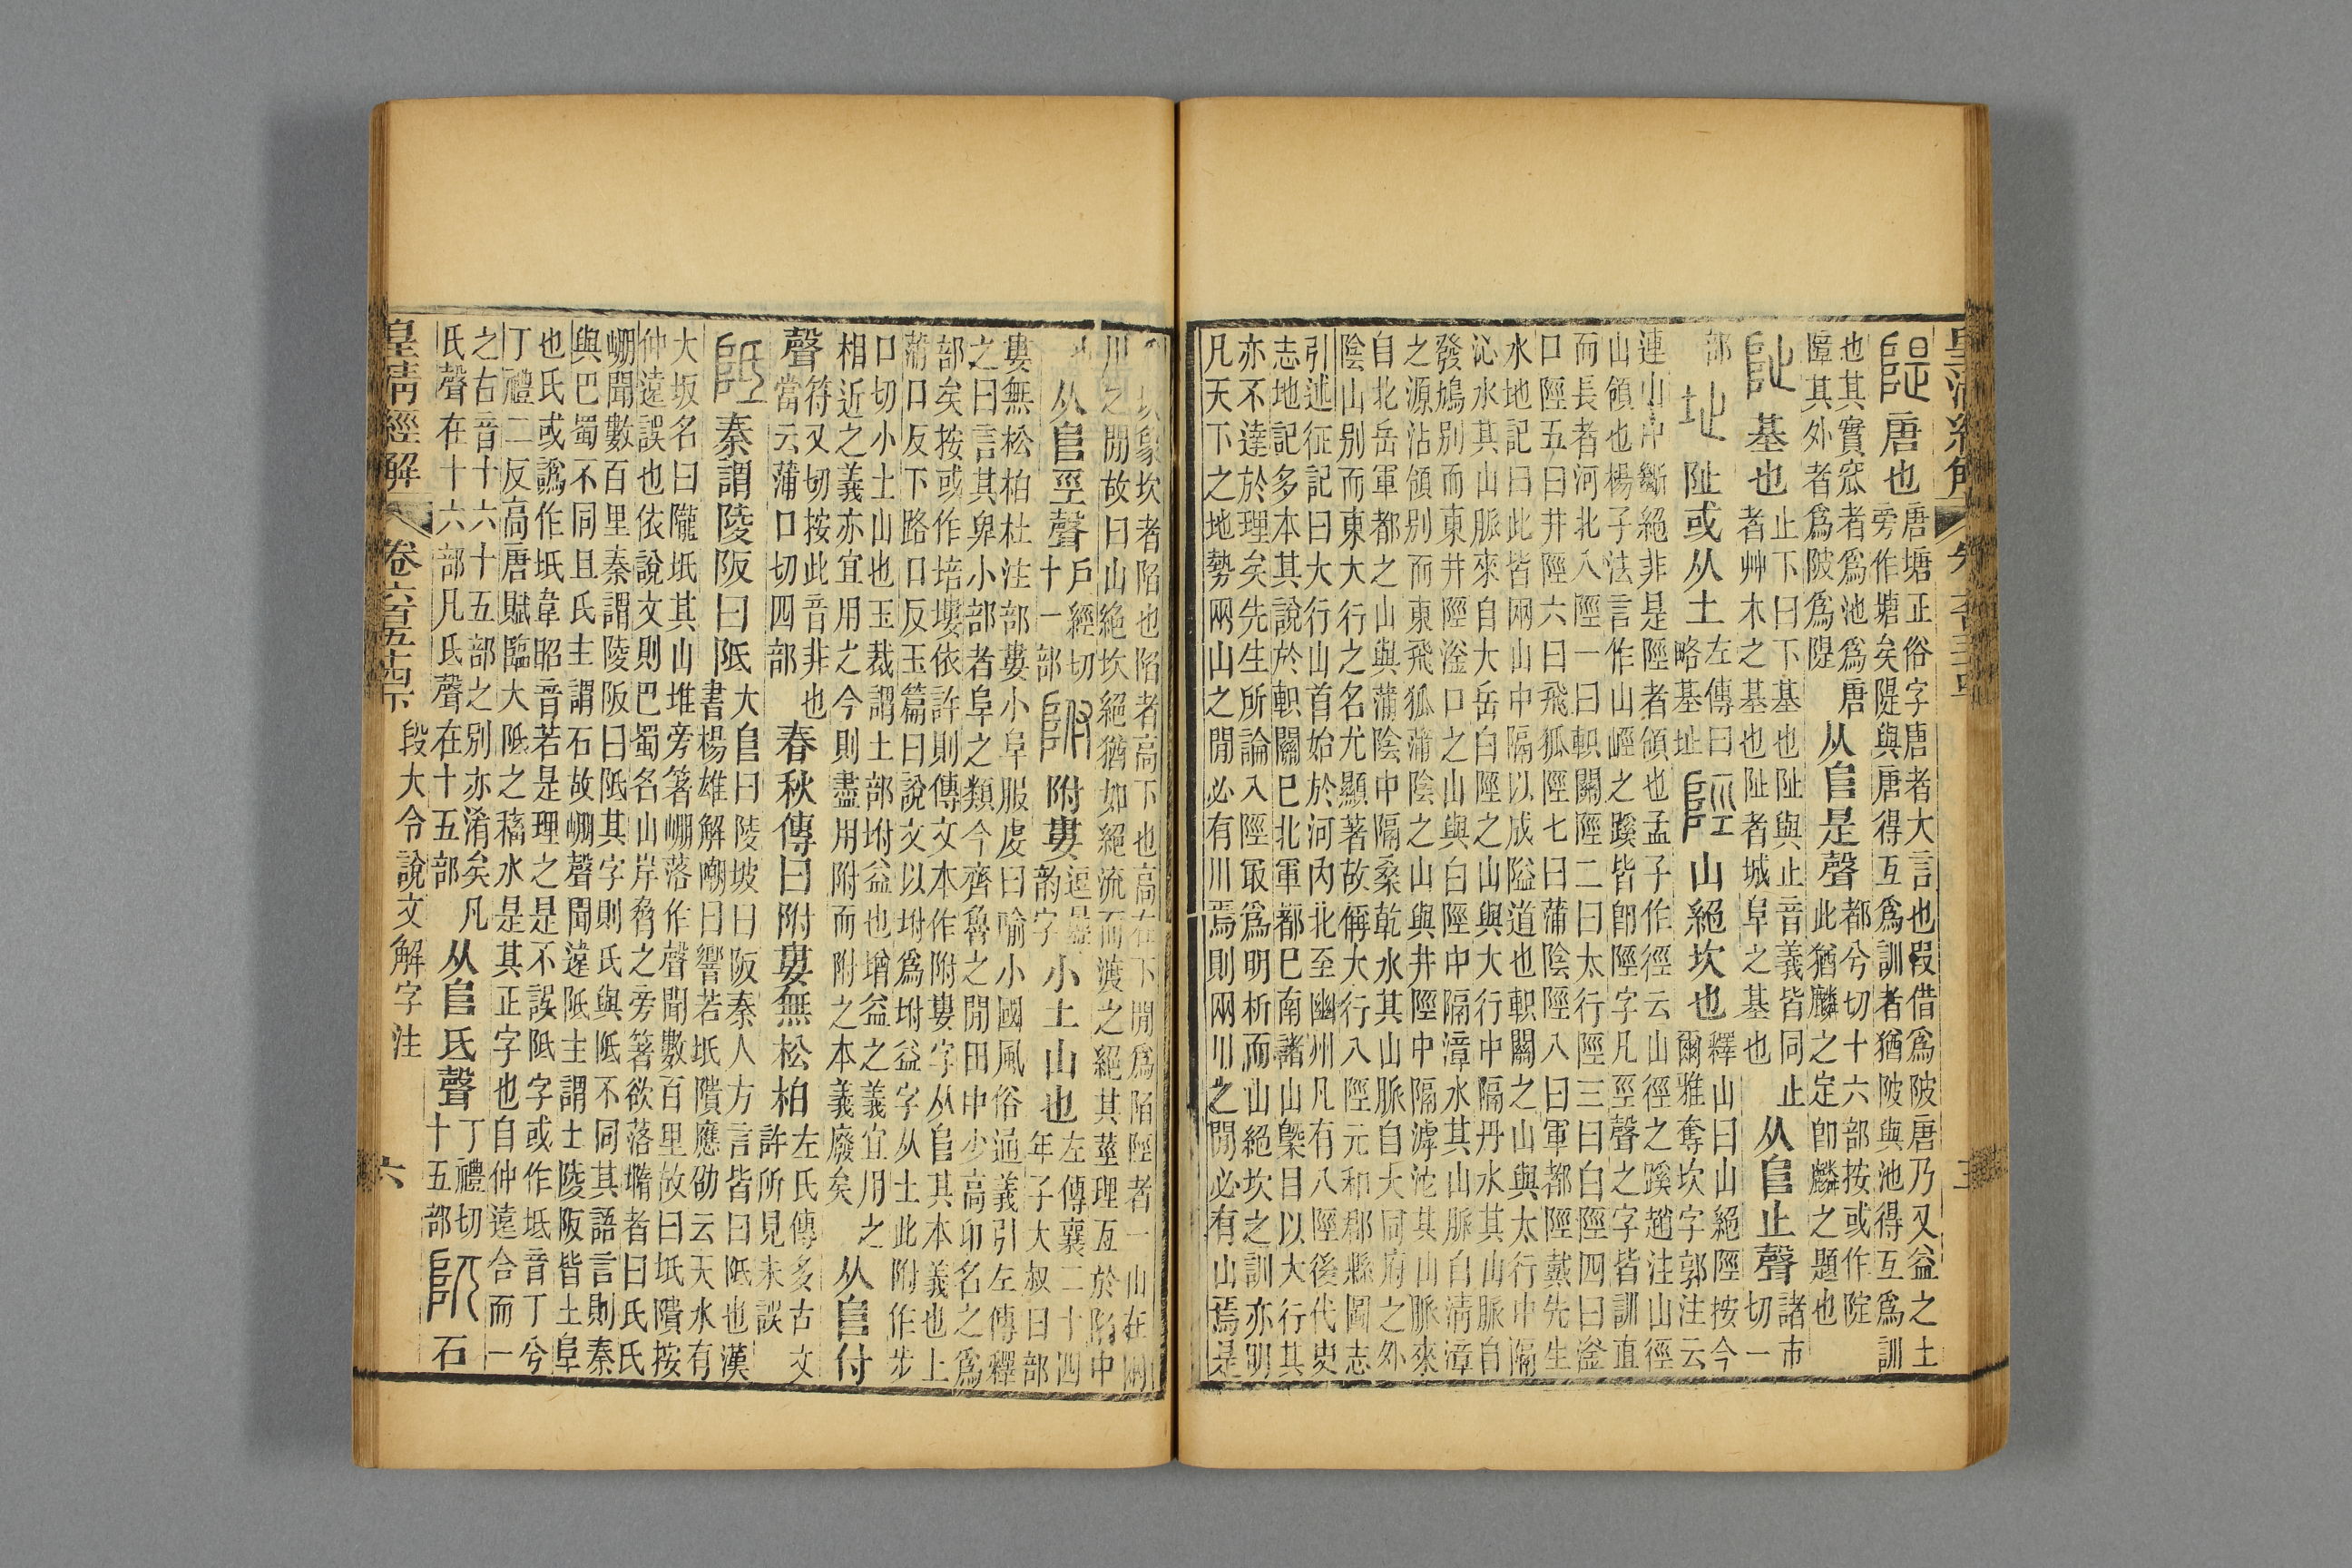 皇清經解
隄唐也
唐塘正俗字唐者大言也叚借爲陂唐乃又益之土
旁作塘矣隄與唐得互爲訓者猶陂與池得互爲訓
也其實窊者爲池爲唐
障其外者爲陂爲隄
从𨸏是聲
都兮切十六部按或作院
此猶麟之定卽麟之題也
阯基也
止下曰下基也阯與止音義皆同止
者艸木之基也阯者城阜之基也
从𨸏止聲
諸市
切一
部
址阯或从土
左傳曰
略基址
陘山絕坎也
釋山曰山絕陘按今
爾雅奪坎字郭注云
連山中斷絕非是陘者領也孟子作徑云山徑之蹊趙注山徑
山領也楊子法言作山峌之蹊皆卽陘字凡巠聲之字皆訓直
而長者河北八陘一曰軹關陘二曰太行陘三曰白陘四曰滏
口陘五曰井陘六曰飛狐陘七曰蒲陰陘八曰軍都陘戴先生
水地記曰此皆兩山中隔以成隘道也軹關之山與太行中隔
沁水其山脈來自大岳白陘之山與大行中隔丹水其山脈自
發鳩別而東井陘滏口之山與白陘中隔漳水其山脈自清漳
之源沾領別而東飛狐蒲陰之山與井陘中隔滹沱其山脈來
自北岳軍都之山與蒲陰中隔桑乾水其山脈自大同府之外
陰山別而東大行之名尤顯著故偁大行八陘元和郡縣圖志
引述征記曰大行山首始於河內北至幽州凡有八陘後代史
志地記多本其說於軹關巳北軍都巳南諸山槩目以大行其
亦不達於理矣先生所論入陘㝡爲明析而山絕坎之訓亦明
凡天下之地勢兩山之閒必有川焉則兩川之閒必有山焉是
坎象坎者陷也陷者高下也高在下閒爲陷陘者一山在兩
川之閒故曰山絕坎絕猶如絕流而渡之絕其莖理亙於陷中
也
从𨸏巠聲
戶經切
十一部
附附婁
逗曡
韵字
小土山也
左傳襄二十四
年子大叔曰部
婁無松柏杜注部婁小阜服虔曰喻小國風俗通義引左傳釋
之曰言其卑小部者阜之類今齊魯之閒田中少高卬名之爲
部矣按或作培塿依許則傳文本作附婁字从𨸏其本義也上
蒲口反下路口反玉篇曰說文以坿爲坿益字从土此附作步
口切小土山也玉裁謂土部坿益也增益之義宜用之
相近之義亦宜用之今則盡用附而附之本義廢矣
从𨸏付
聲
符又切按此音非也
當云蒲口切四部
春秋傳曰附婁無松柏
左氏傳多古文
許所見未誤
阺秦謂陵阪曰阺
大𨸏曰陵坡曰阪秦人方言皆曰阺也漢
書楊雄解嘲曰響若坻隤應劭云天水有
大坂名曰隴坻其山堆旁箸崩落作聲聞數百里故曰坻隤按
仲遠誤也依說文則巴蜀名山岸脅之旁箸欲落墮者曰氏氏
崩聞數百里秦謂陵阪曰阺其字則氏與阺不同其語言則秦
與巴蜀不同且氏主謂石故崩聲聞遠阺主謂土陵阪皆土阜
也氏或譌作坻韋昭音若是理之是不誤阺字或作坻音丁兮
丁禮二反高唐賦臨大阺之稸水是其正字也自仲遠合而一
之右音十六十五部之別亦淆矣凡
氏聲在十六部凡氐聲在十五部
从𨸏氐聲
丁禮切
十五部
阢石
皇清經解 卷六百五十四下 段大令說文解字注 六